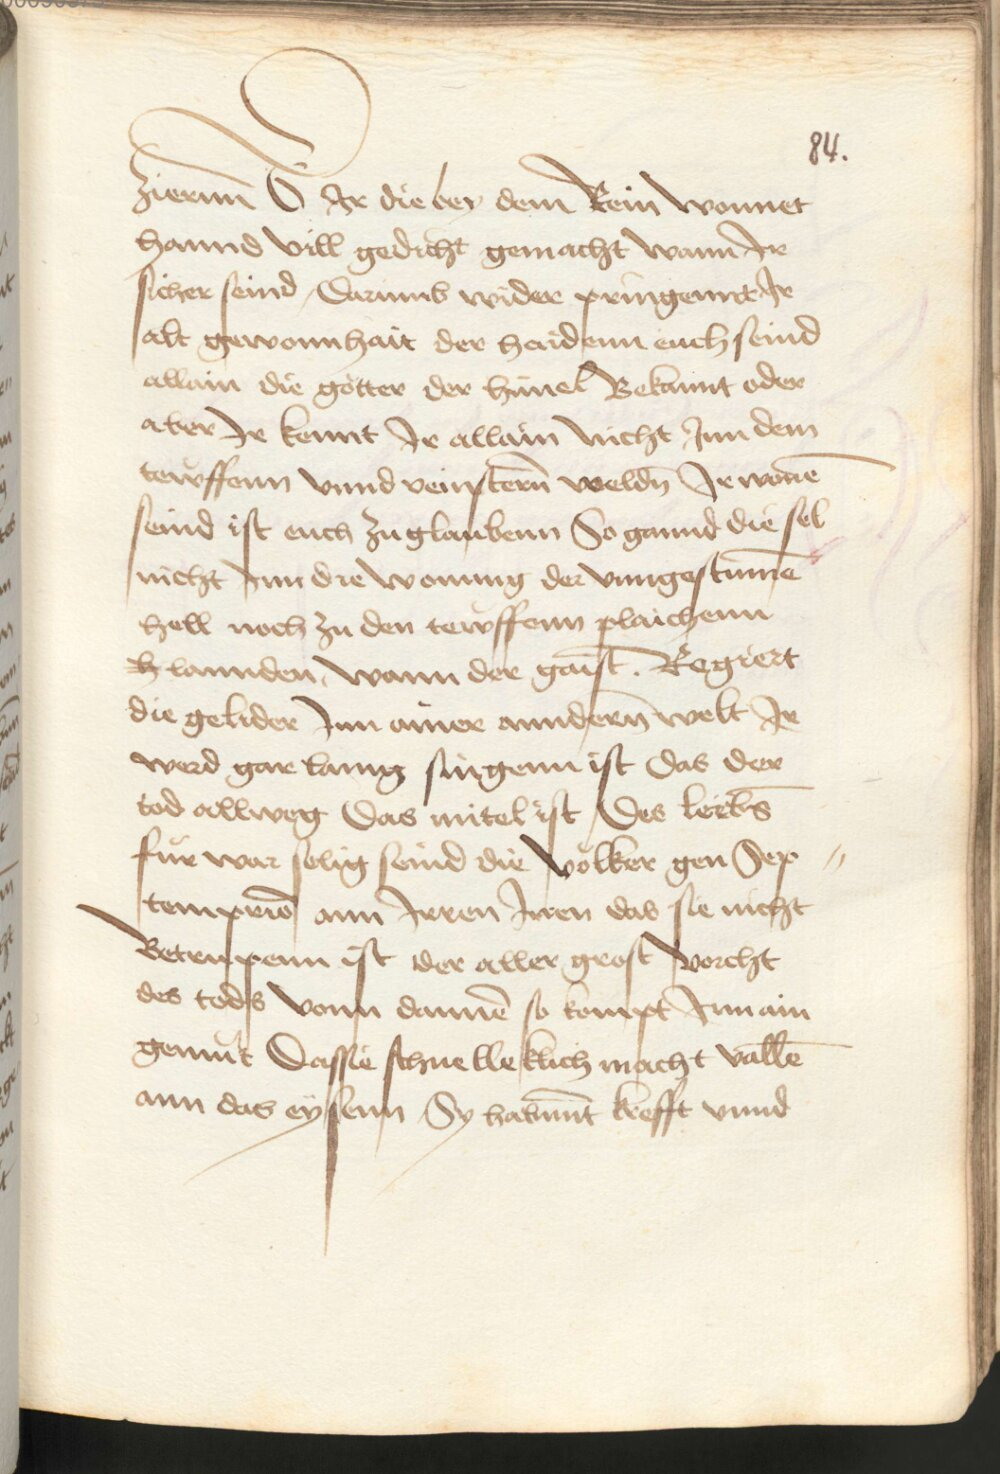 84.
Zierunn O Ir die bey dem Rein wonnet
hannd vill gedicht gemacht wann Ir
sicher seind Darumb wider pringennt Ir
alt gewonnhait der haidenn euch seind
allain die götter der himel Bekannt oder
aber Ir kennt Ir allain nicht Inn dem
tewffenn vnnd veinsternn̄ weldn̄ Ir wonē
seind ist euch zu glaubenn So gannd die sel
nicht Inn die wonung der vnngestimē
hell noch zu den tewffenn plaichenn
lannden, wann der gaist. Regiert
die gelider Inn ainer anndernn̄ welt Ir
werd gar lanng singenn ist das der
tod allweg Das mitel ist Des leibs
für war selig seind die völker gen Sep //
temprio ann Irren Irren das sie nicht
Betrupenn ist der aller grost vorcht
des tods vonn dannē so kompt Inn ain
gemüt Das sie schnelleklich macht vallē
ann das eysenn Sy habennt krefft vnnd